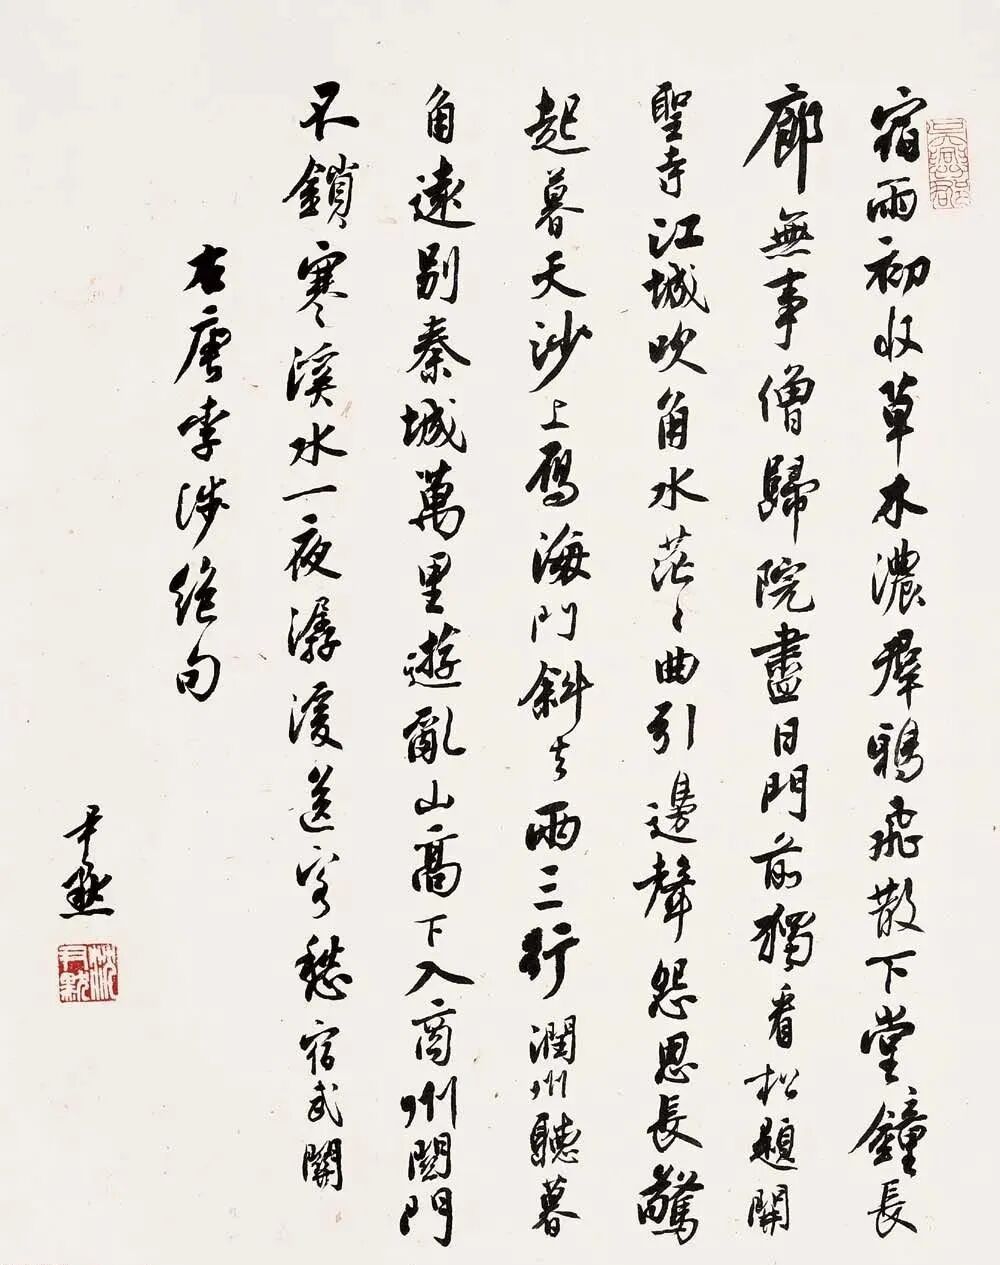 宿雨初收草木濃群鴉飛散下堂鐘長
廊無事僧歸院盡日門前獨看松題開
聖寺江城吹角水茫〻曲引邊聲怨思長驚
起暮天沙上雁海門斜去兩三行潤州聽暮
角遠別秦城萬里遊亂山高下入商州關門
不鎖寒溪水一夜潺湲送客愁宿武關
右唐李涉絕句
尹默
沈尹默